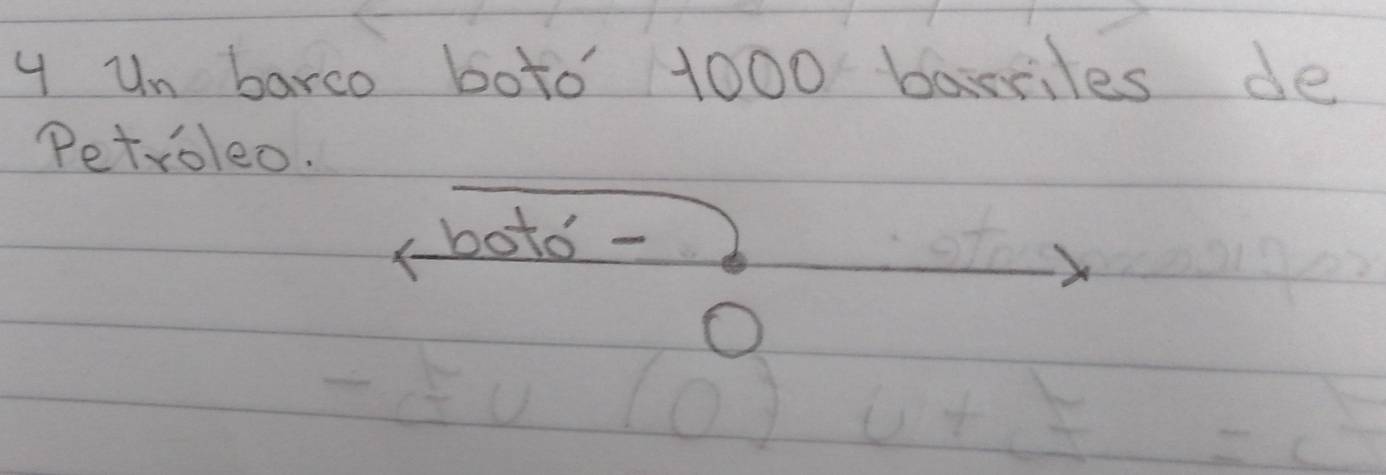 4 Un barco botó 1000 barriles de
Petróleo.
botó -
0